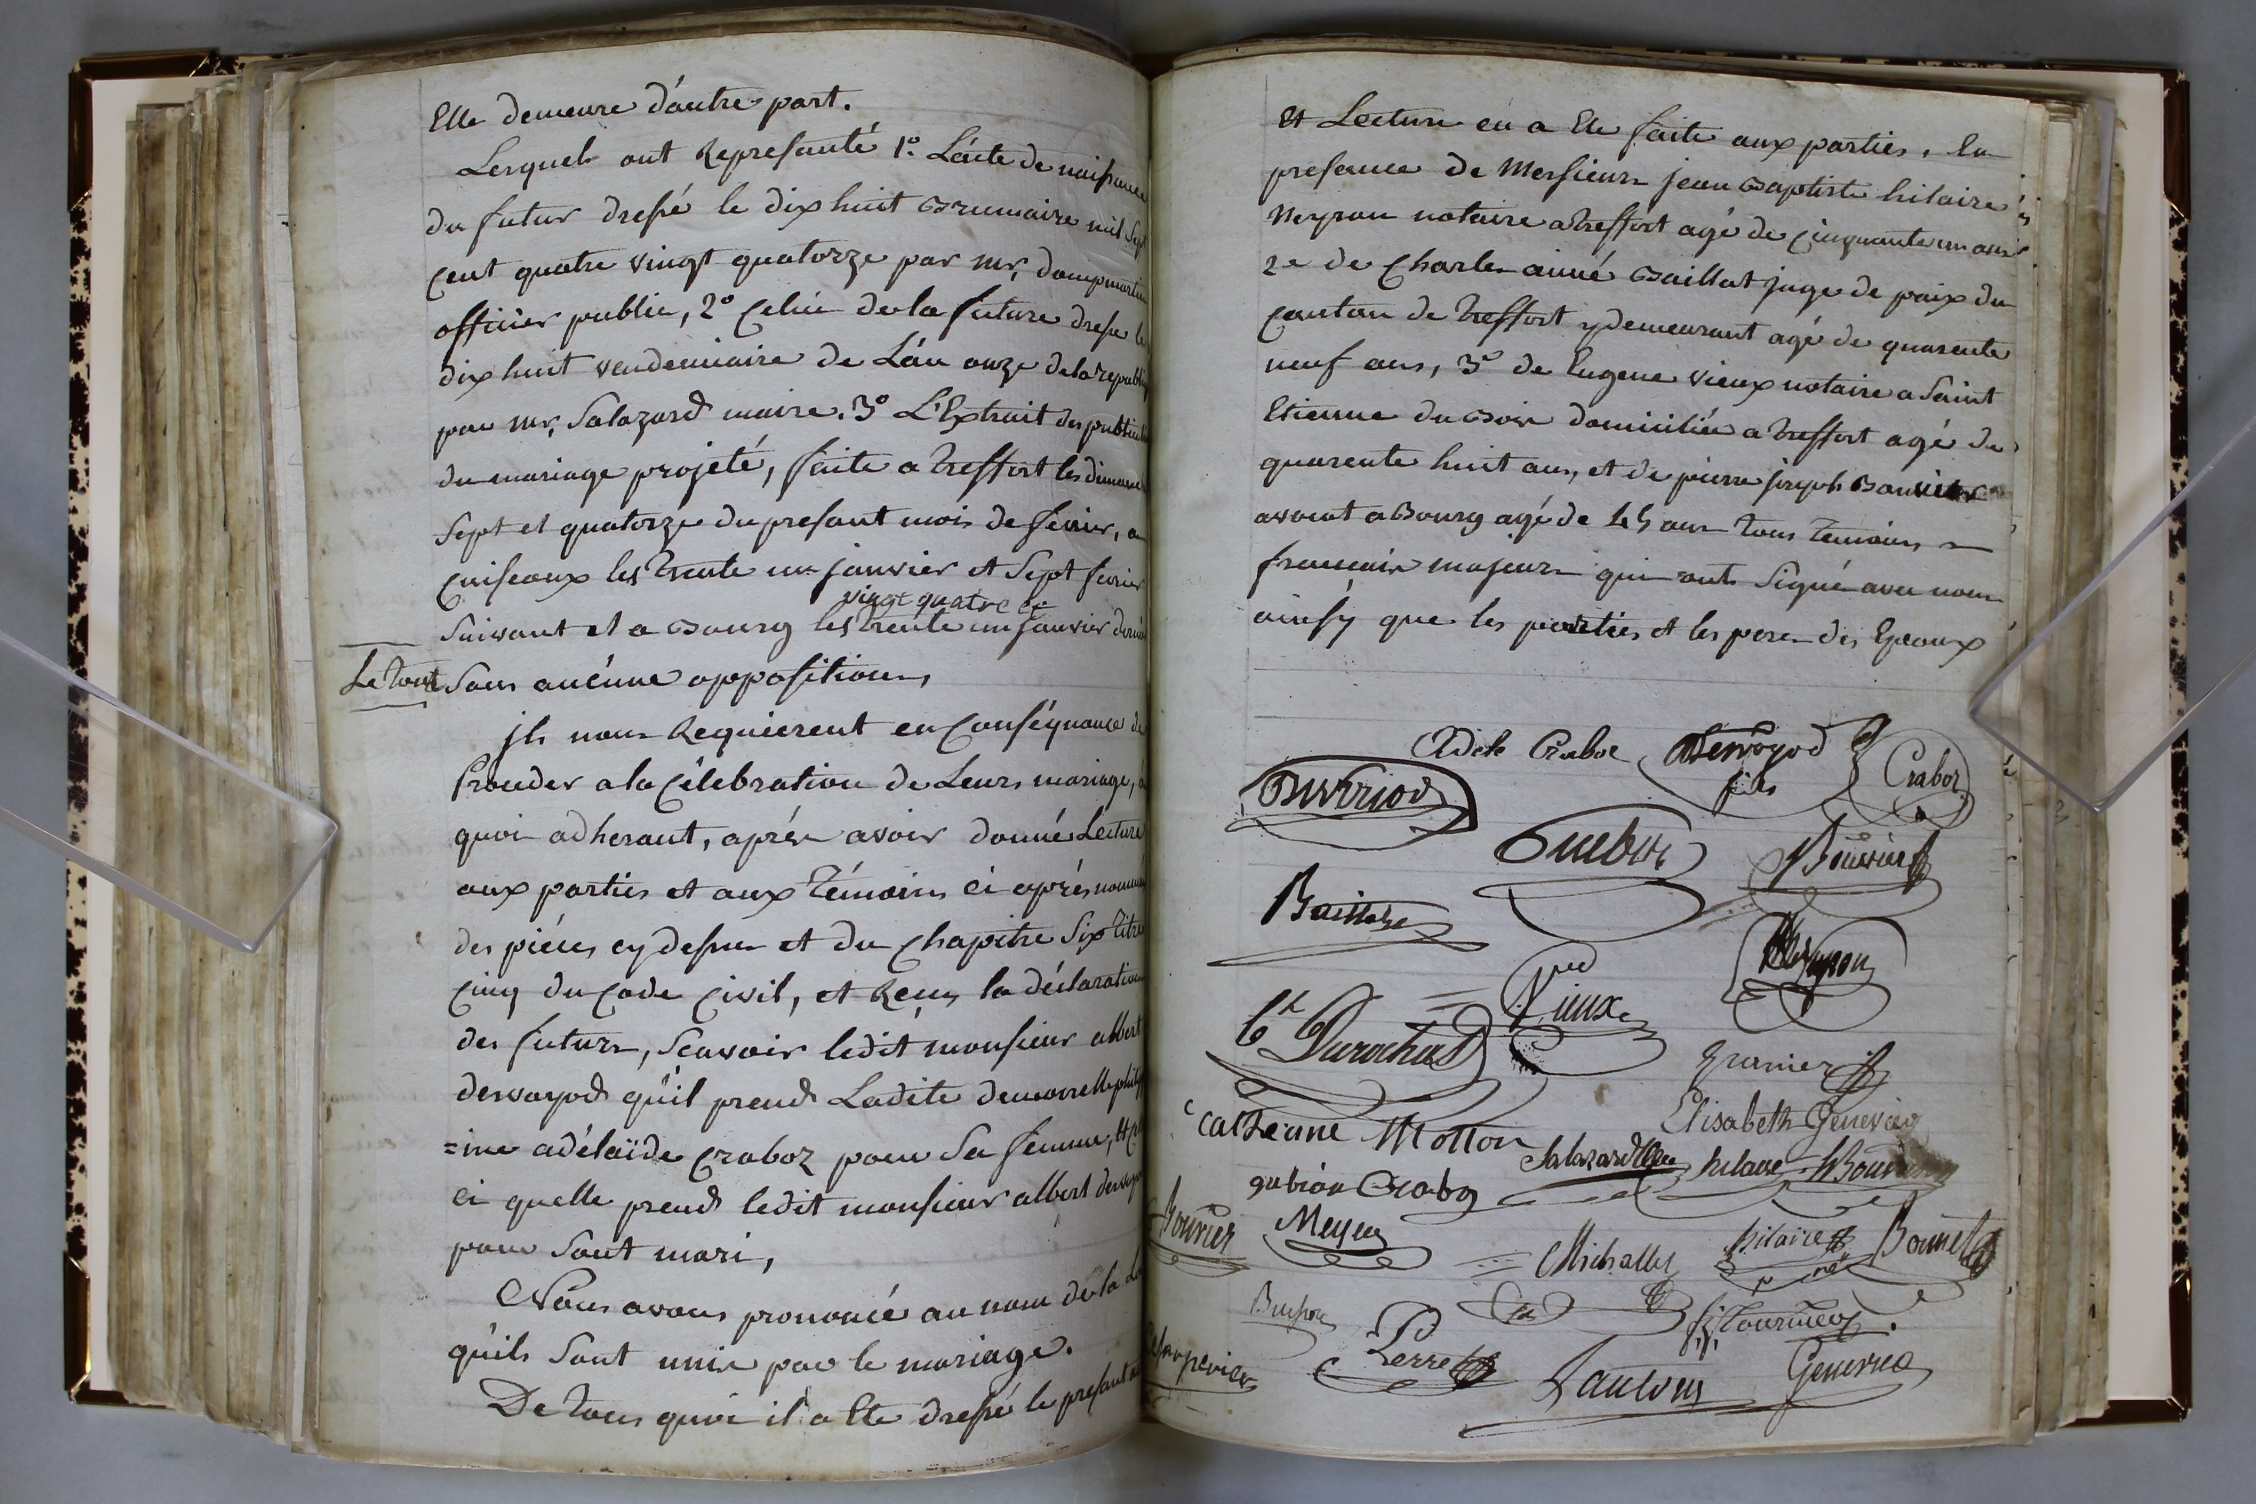 Elle demeure d'autre part.
Lesquels ont Represanté 1º L'acte de naissance
du futur dressé le dix huit Brumaire mil Sept
cent quatre vingt quatorze par Mr, dompmartin
officier public, 2º Celui de la future dressé le
dix huit vendemiaire de L'an onze de la republique
par Mr, Salazard maire. 3º L'Extrait des publications
du mariage projeté, faite a treffort les dimanches
Sept et quatorze du presant mois de fevrier, a
Cuiseaux les trente un janvier et Sept fevrier
vingt quatre et
Suivant et a Bourg les trente un janvier dernier
Le tout Sans aucune opposition,
jls nous Requierent en Conséquance de
Proceder a la Célebration de Leurs mariage, a
quoi adherant, après avoir donné Lecture
aux parties et aux témoins ci après nommés
des piéces cy dessus et du Chapitre Six titre
Cinq du Code Civil, et Reçu la déclaration
des futurs, Scavoir ledit monsieur albert
dervoyod qu'il prend Ladite demoiselle philip
=ine adélaïde Craboz pour Sa femme, et Celle
ci quelle prend ledit monsieur albert dervoyod
pour Sont mari,
Nous avons prononcé au nom de la Loi
qu'ils Sont unis par le mariage.
De tous quoi il a Ete dressé le presant acte
Et Lecture en a Ete faite aux parties, En
presence de Messieurs jean Baptiste hilaire
Neyron notaire a treffort agé de Cinquante un ans
2e de Charles aimé Baillat juge de paix du
Canton de treffort y demeurant agé de quarente
neuf ans, 3º de Eugene Vieux notaire a Saint
Etienne du Bois domicilié a treffort agé de
quarente huit ans, et de pierre joseph Bouvier
avocat a Bourg agé de 45 ans tous temoins
francais majeurs qui ont Signé avec nous
ainsÿ que les parties et les peres des Epoux
Adele Craboz Dervoyod
fils
Craboz
Dervoyod
Bouvier
Baillat
Neyron
Vieux
Ct Durochat
granier
Elisabeth Genevier
Catherine Motton
Salazard hilaire Bouvier
gabion Craboz
Bouvier Meyer Michallet hilaire Bonnet
Buchon
Perret
Genevier